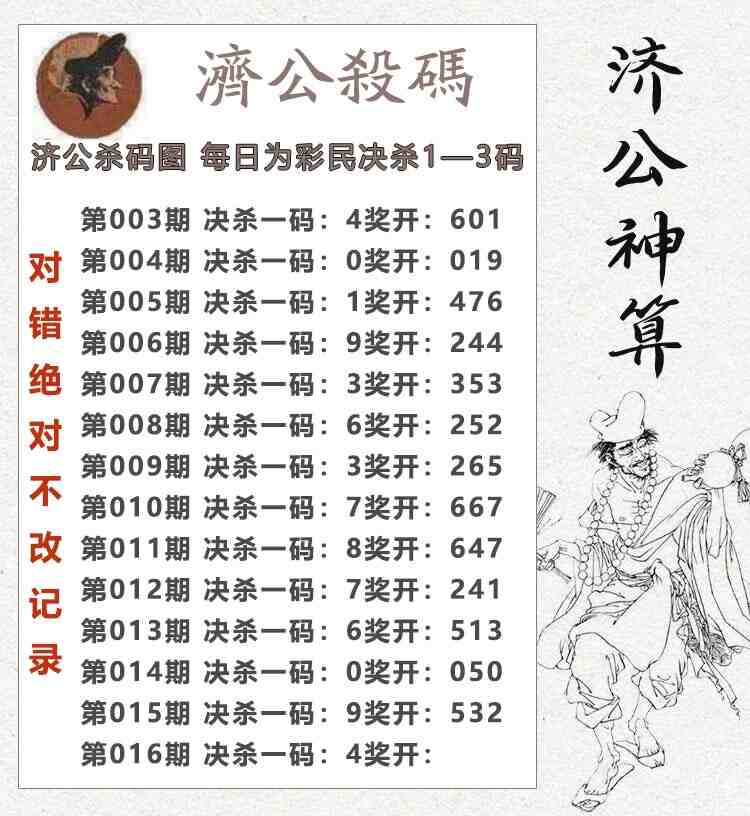 濟公殺碼
济公杀码图 每日为彩民决杀1—3码
第003期 决杀一码：4奖开：601
第004期 决杀一码：0奖开：019
第005期 决杀一码：1奖开：476
第006期 决杀一码：9奖开：244
第007期 决杀一码：3奖开：353
第008期 决杀一码：6奖开：252
第009期 决杀一码：3奖开：265
第010期 决杀一码：7奖开：667
第011期 决杀一码：8奖开：647
第012期 决杀一码：7奖开：241
第013期 决杀一码：6奖开：513
第014期 决杀一码：0奖开：050
第015期 决杀一码：9奖开：532
第016期 决杀一码：4奖开：
对错绝对不改记录
济公神算